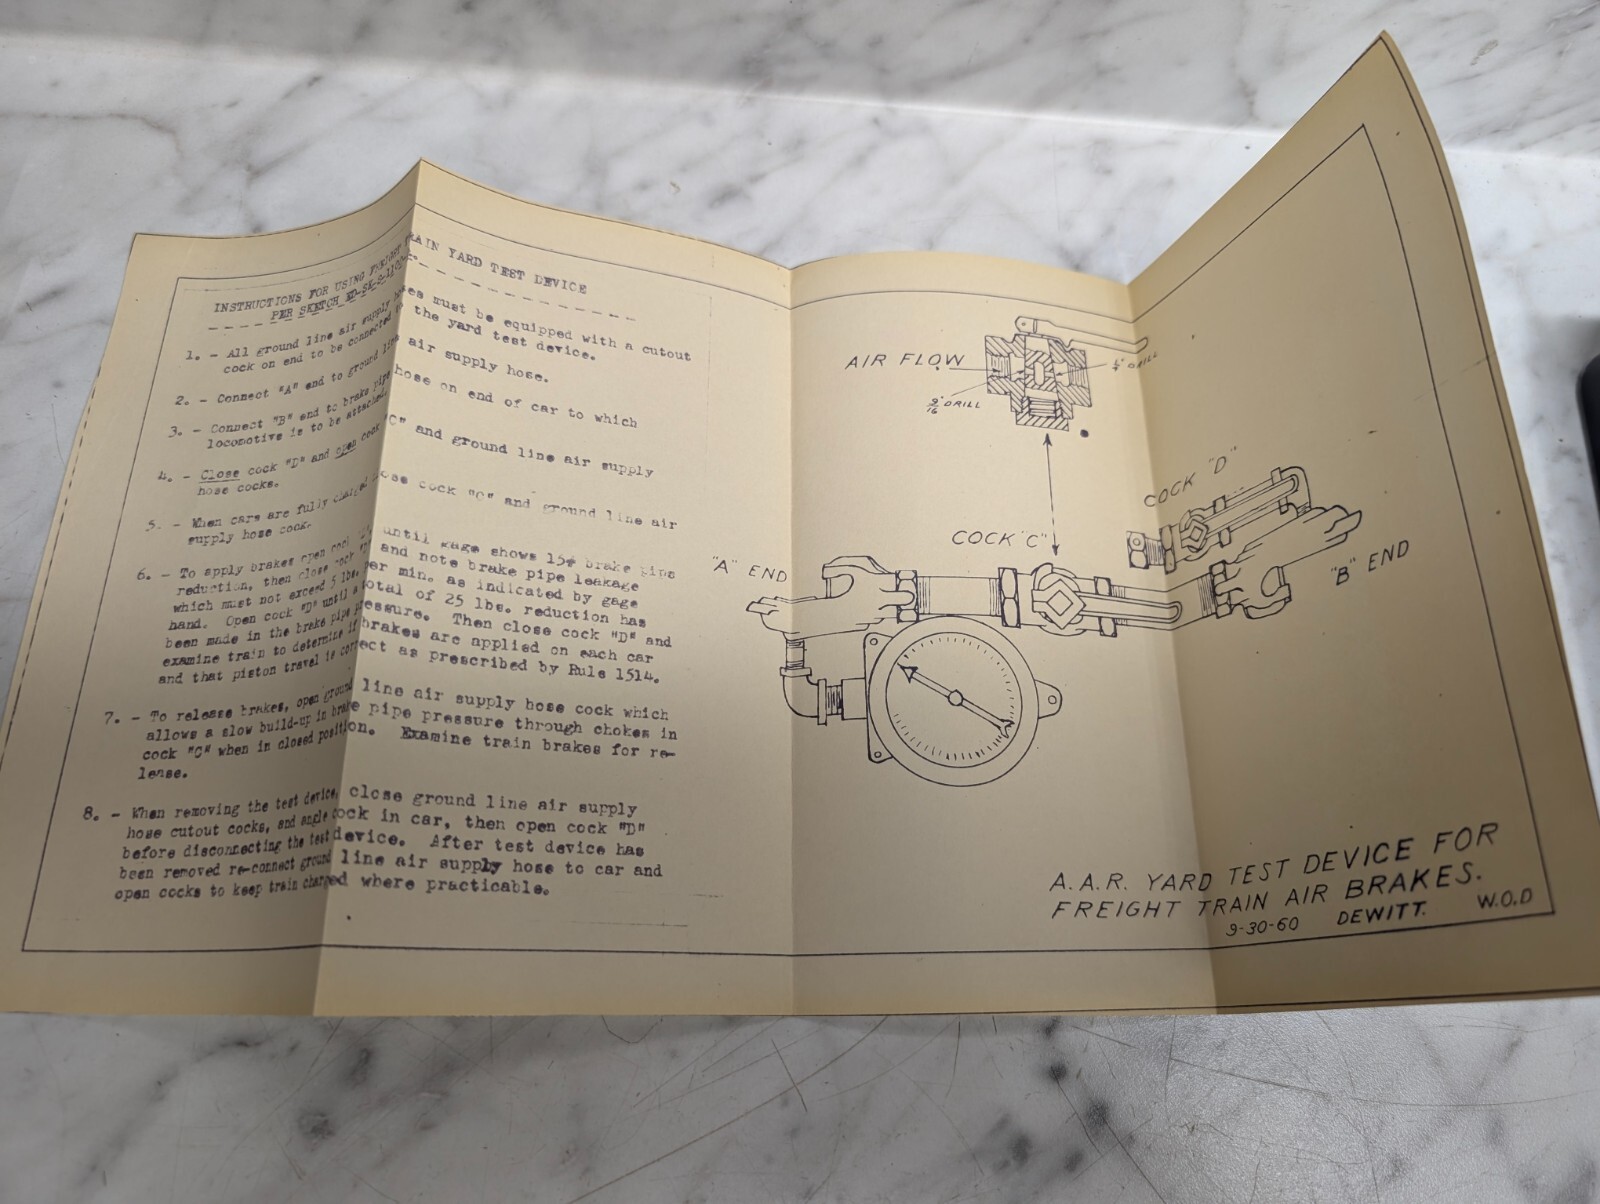 INSTRUCTIONS FOR USING FREIGHT TRAIN YARD TEST DEVICE
PER SKETCH
1. - All ground line air supply hoses must be equipped with a cutout
cock on end to be connected to the yard test device.
2. - Connect "A" end to ground line air supply hose.
3. - Connect "B" end to brake pipe hose on end of car to which
locomotive is to be attached.
4. - Close cock "D" and open cock "C" and ground line air supply
hose cocks.
5. - When cars are fully charged close cock "C" and ground line air
supply hose cock.
6. - To apply brakes open cock "D" until gage shows 15# brake pipe
reduction, then close cock "D" and note brake pipe leakage
which must not exceed 5 lbs. per min. as indicated by gage
hand. Open cock "D" until a total of 25 lbs. reduction has
been made in the brake pipe pressure. Then close cock "D" and
examine train to determine if brakes are applied on each car
and that piston travel is correct as prescribed by Rule 1514.
7. - To release brakes, open ground line air supply hose cock which
allows a slow build-up in brake pipe pressure through chokes in
cock "C" when in closed position. Examine train brakes for re-
lease.
8. - When removing the test device, close ground line air supply
hose cutout cocks, and angle cock in car, then open cock "D"
before disconnecting the test device. After test device has
been removed re-connect ground line air supply hose to car and
open cocks to keep train charged where practicable.
AIR FLOW
1/4" DRILL
9/16" DRILL
COCK "D"
COCK "C"
"A" END
"B" END
A.A.R. YARD TEST DEVICE FOR
FREIGHT TRAIN AIR BRAKES.
9-30-60 DEWITT. W.O.D